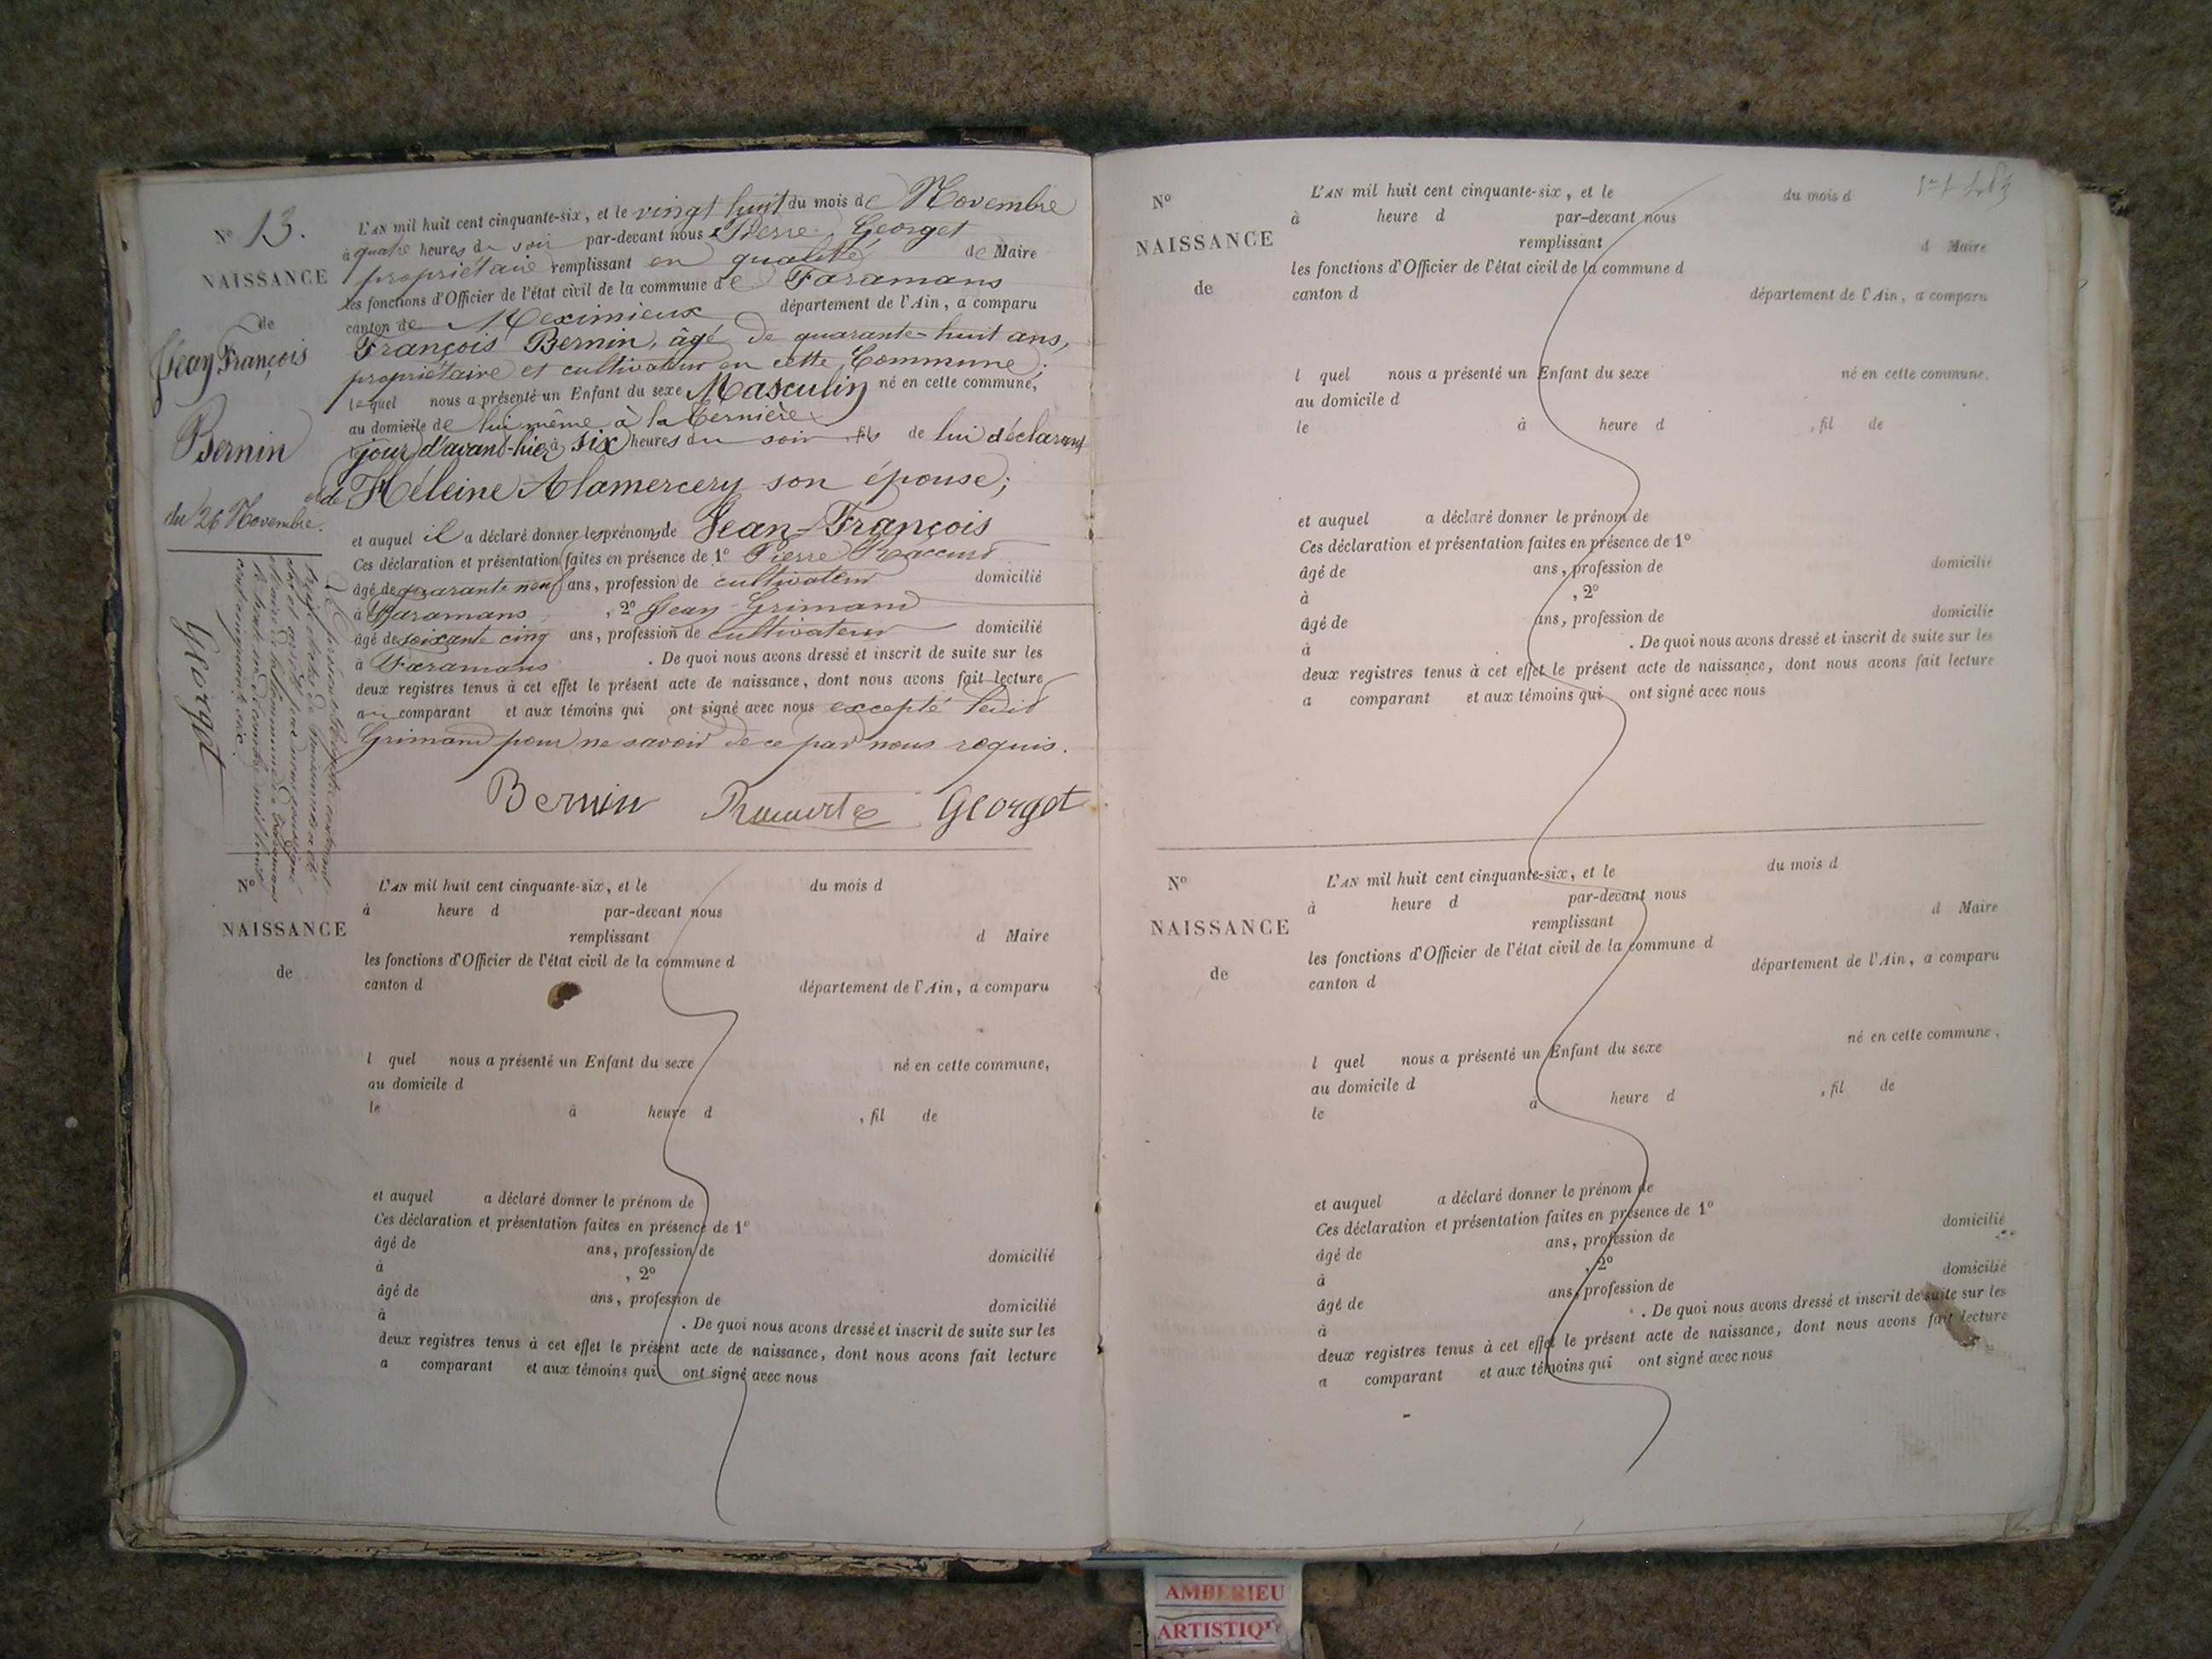 N° 13.
NAISSANCE
de
Jean François
Bernin
du 26 Novembre.
L'AN mil huit cent cinquante-six, et le vingt huit du mois de Novembre
à quatre heures du soir par-devant nous Pierre Georget
propriétaire remplissant en qualité de Maire
les fonctions d'Officier de l'état civil de la commune de Faramans
canton de Meximieux département de l'Ain, a comparu
François Bernin, âgé de quarante-huit ans,
propriétaire et cultivateur en cette Commune;
lequel nous a présenté un Enfant du sexe Masculin né en cette commune,
au domicile de lui même à la
jour d'avant-hier à six heures du soir fils de lui déclarant
et de Héleine Alamercery son épouse;
et auquel il a déclaré donner les prénoms de Jean-François
Ces déclaration et présentation faites en présence de 1° Pierre
âgé de quarante neuf ans, profession de cultivateur domicilié
à Faramans, 2° Jean Grimand
âgé de soixante cinq ans, profession de cultivateur domicilié
à Faramans . De quoi nous avons dressé et inscrit de suite sur les
deux registres tenus à cet effet le présent acte de naissance, dont nous avons fait lecture
au comparant et aux témoins qui ont signé avec nous excepté ledit
Grimand pour ne savoir de ce par nous requis.
Bernin Georget
Le présent
Georget
N°
NAISSANCE
de
L'AN mil huit cent cinquante-six, et le du mois d
à heure d par-devant nous
remplissant d Maire
les fonctions d'Officier de l'état civil de la commune d
canton d département de l'Ain, a comparu
l quel nous a présenté un Enfant du sexe né en cette commune,
au domicile d
le à heure d , fil de
et auquel a déclaré donner le prénom de
Ces déclaration et présentation faites en présence de 1°
âgé de ans, profession de domicilié
à , 2°
âgé de ans, profession de domicilié
à . De quoi nous avons dressé et inscrit de suite sur les
deux registres tenus à cet effet le présent acte de naissance, dont nous avons fait lecture
a comparant et aux témoins qui ont signé avec nous
N°
NAISSANCE
de
L'AN mil huit cent cinquante-six, et le du mois d
à heure d par-devant nous
remplissant d Maire
les fonctions d'Officier de l'état civil de la commune d
canton d département de l'Ain, a comparu
l quel nous a présenté un Enfant du sexe né en cette commune,
au domicile d
le à heure d , fil de
et auquel a déclaré donner le prénom de
Ces déclaration et présentation faites en présence de 1°
âgé de ans, profession de domicilié
à , 2°
âgé de ans, profession de domicilié
à . De quoi nous avons dressé et inscrit de suite sur les
deux registres tenus à cet effet le présent acte de naissance, dont nous avons fait lecture
a comparant et aux témoins qui ont signé avec nous
N°
NAISSANCE
de
L'AN mil huit cent cinquante-six, et le du mois d
à heure d par-devant nous
remplissant d Maire
les fonctions d'Officier de l'état civil de la commune d
canton d département de l'Ain, a comparu
l quel nous a présenté un Enfant du sexe né en cette commune,
au domicile d
le à heure d , fil de
et auquel a déclaré donner le prénom de
Ces déclaration et présentation faites en présence de 1°
âgé de ans, profession de domicilié
à , 2°
âgé de ans, profession de domicilié
à . De quoi nous avons dressé et inscrit de suite sur les
deux registres tenus à cet effet le présent acte de naissance, dont nous avons fait lecture
a comparant et aux témoins qui ont signé avec nous
AMBERIEU
ARTISTIQ